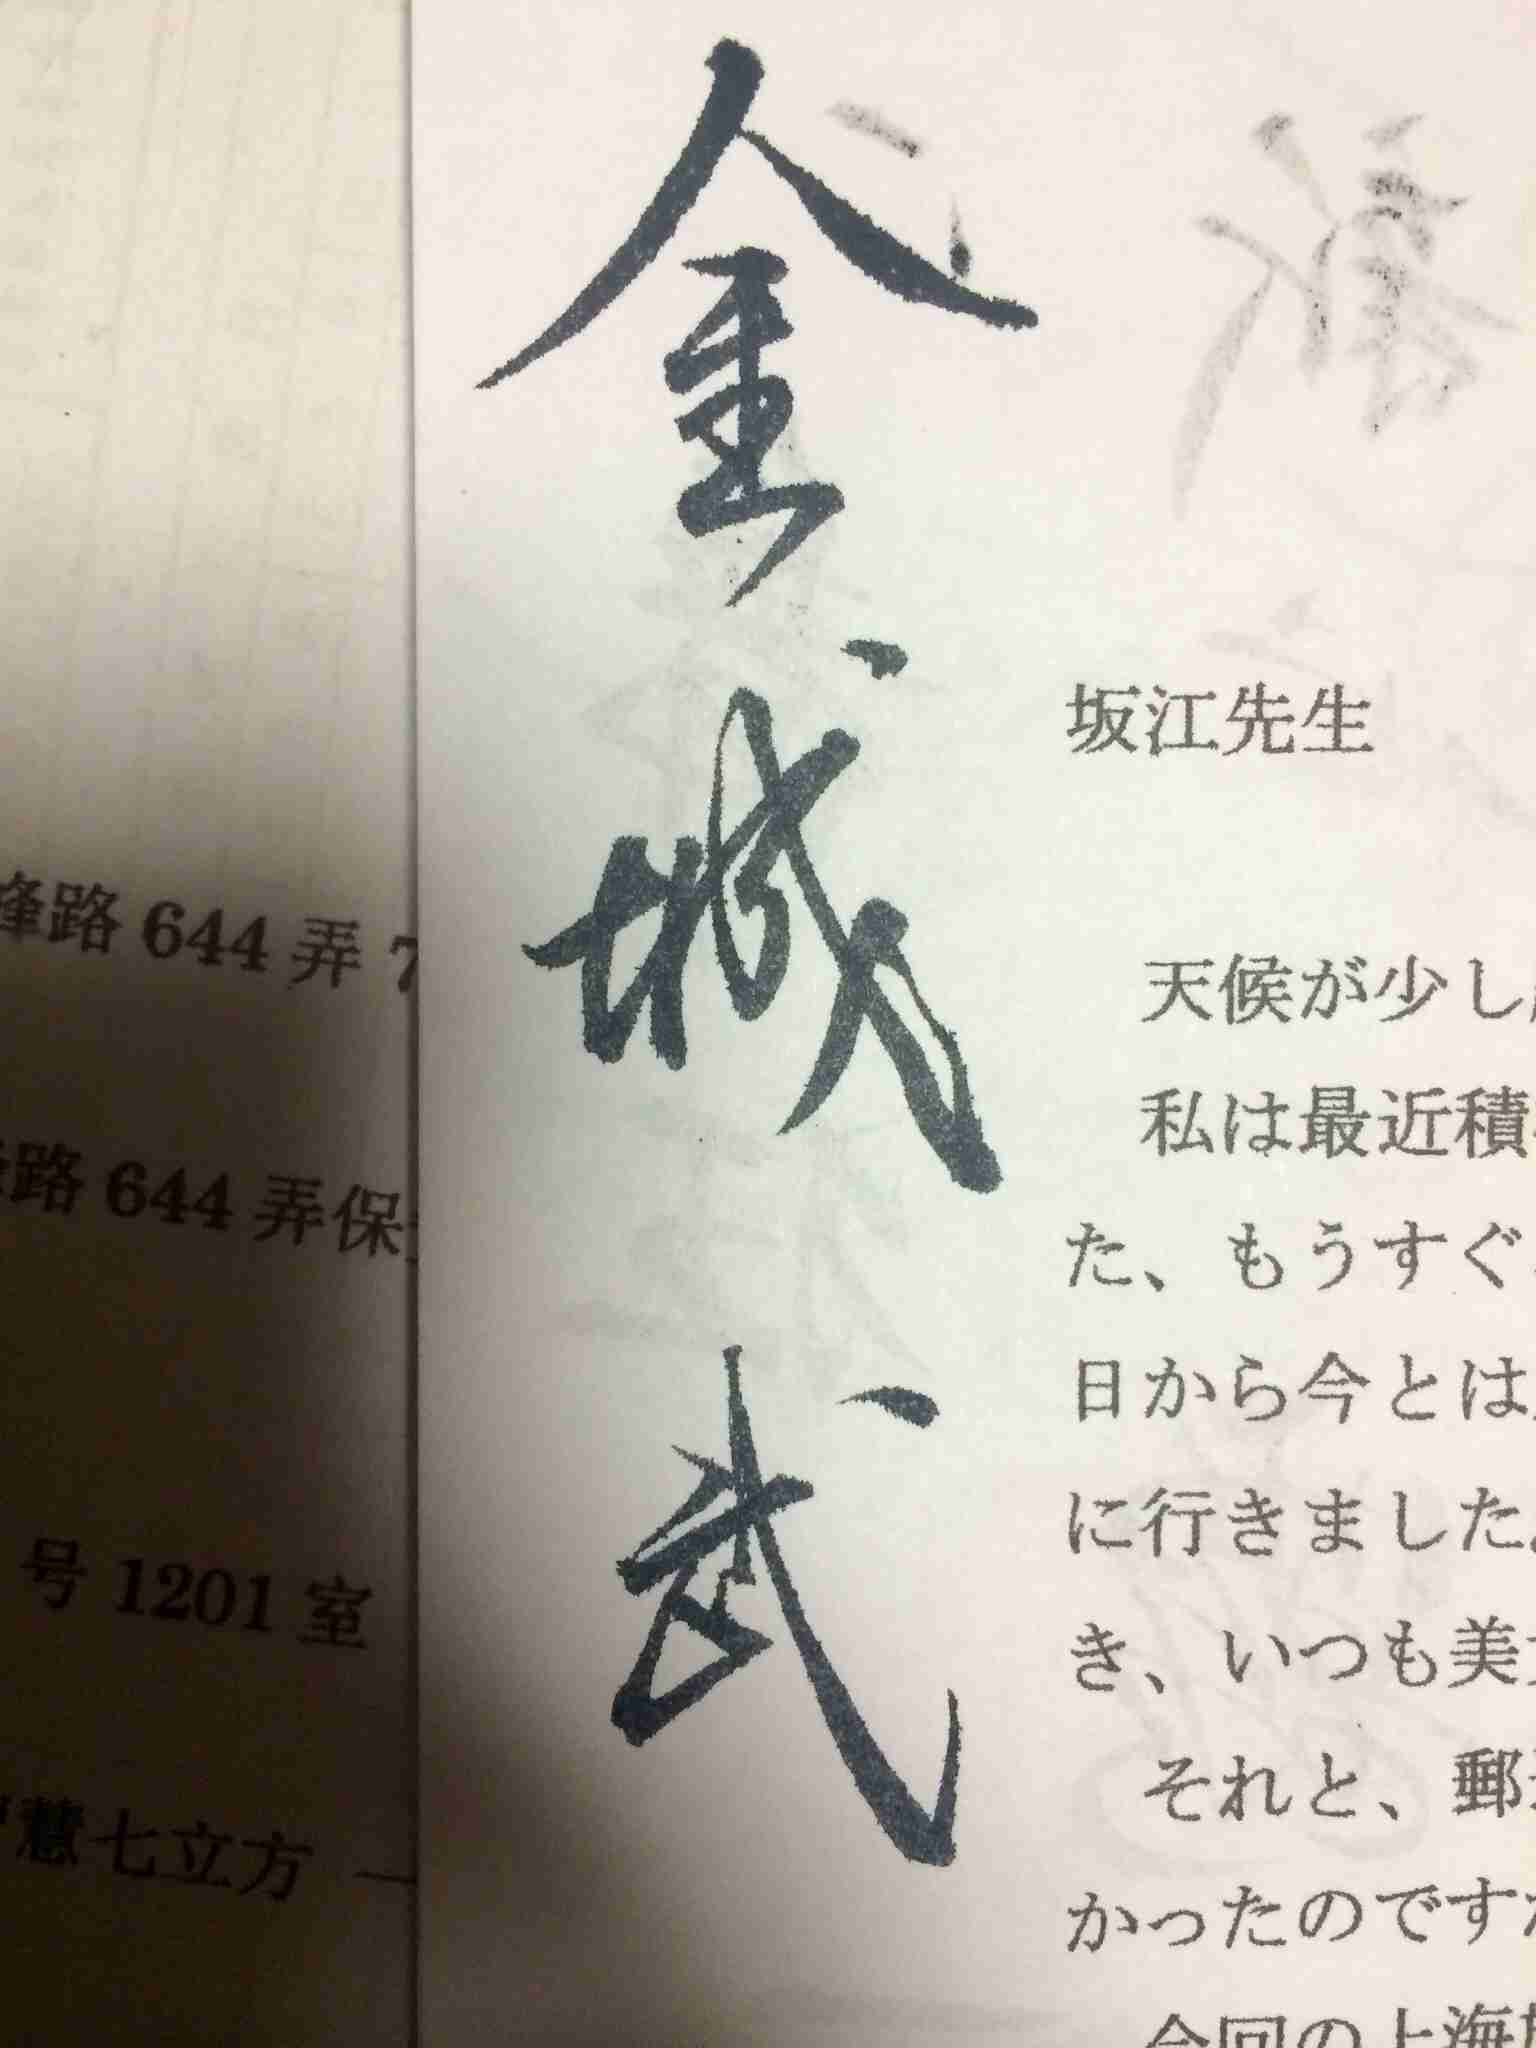 金城武
坂江先生
天候が少し
私は最近積
た、もうすぐ
日から今とは
に行きました
き、いつも美
それと、郵
かったのです
今回の上海
路 644 弄 7
路 644 弄保
号 1201 室
慧七立方 一